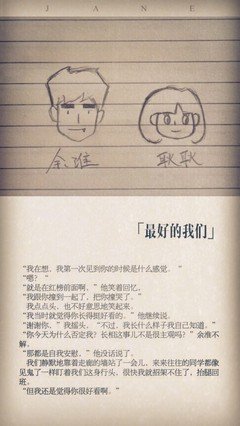 JANE
余淮
耿耿
「最好的我们」
“我在想，我第一次见到你的时候是什么感觉。”
“嗯？”
“就是在红榜前面啊。”他笑着回忆。
“我跟你撞到一起了，把你撞哭了。”
我点点头，也不好意思地笑起来。
“我当时就觉得你长得挺好看的。”他继续说。
“谢谢你，”我摇头，“不过，我长什么样子我自己知道。”
“你今天为什么否定我？长相这事儿不是很主观吗？”余淮不解。
“那都是自我安慰。”他没话说了。
我们静默地靠着走廊的墙站了一会儿，来来往往的同学都像见鬼了一样盯着我们这身行头，很快我就招架不住了，抬腿回班。
“但我还是觉得你很好看啊。”